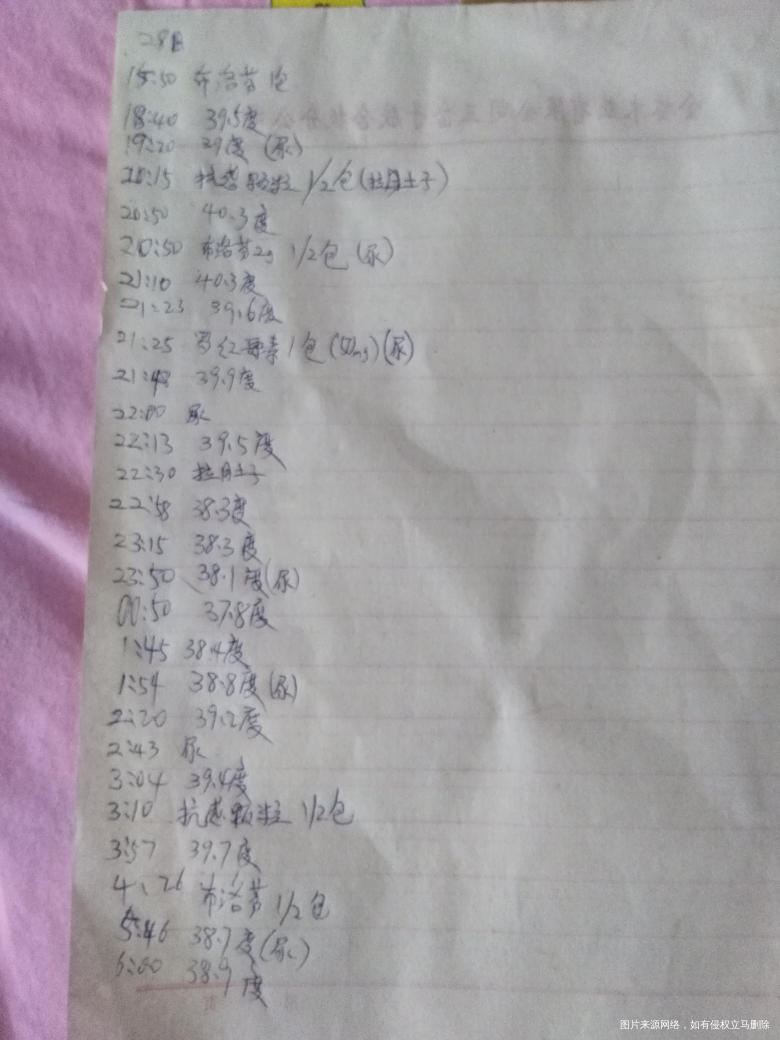 28日
15:50 布洛芬
18:40 39.5度
19:20 39度 (尿)
20:15 抗感颗粒 1/2包(拉肚子)
20:50 40.3度
20:50 布洛芬2g 1/2包 (尿)
21:10 40.3度
21:23 39.6度
21:25 罗红霉素1包(50mg)(尿)
21:48 39.9度
22:00 尿
22:13 39.5度
22:30 拉肚子
22:58 38.3度
23:15 38.3度
23:50 38.1度(尿)
00:50 37.8度
1:45 38.4度
1:54 38.8度(尿)
2:20 39.2度
2:43 尿
3:04 39.4度
3:10 抗感颗粒 1/2包
3:57 39.7度
4:26 布洛芬 1/2包
5:46 38.7度(尿)
6:00 38.9度
图片来源网络，如有侵权立马删除